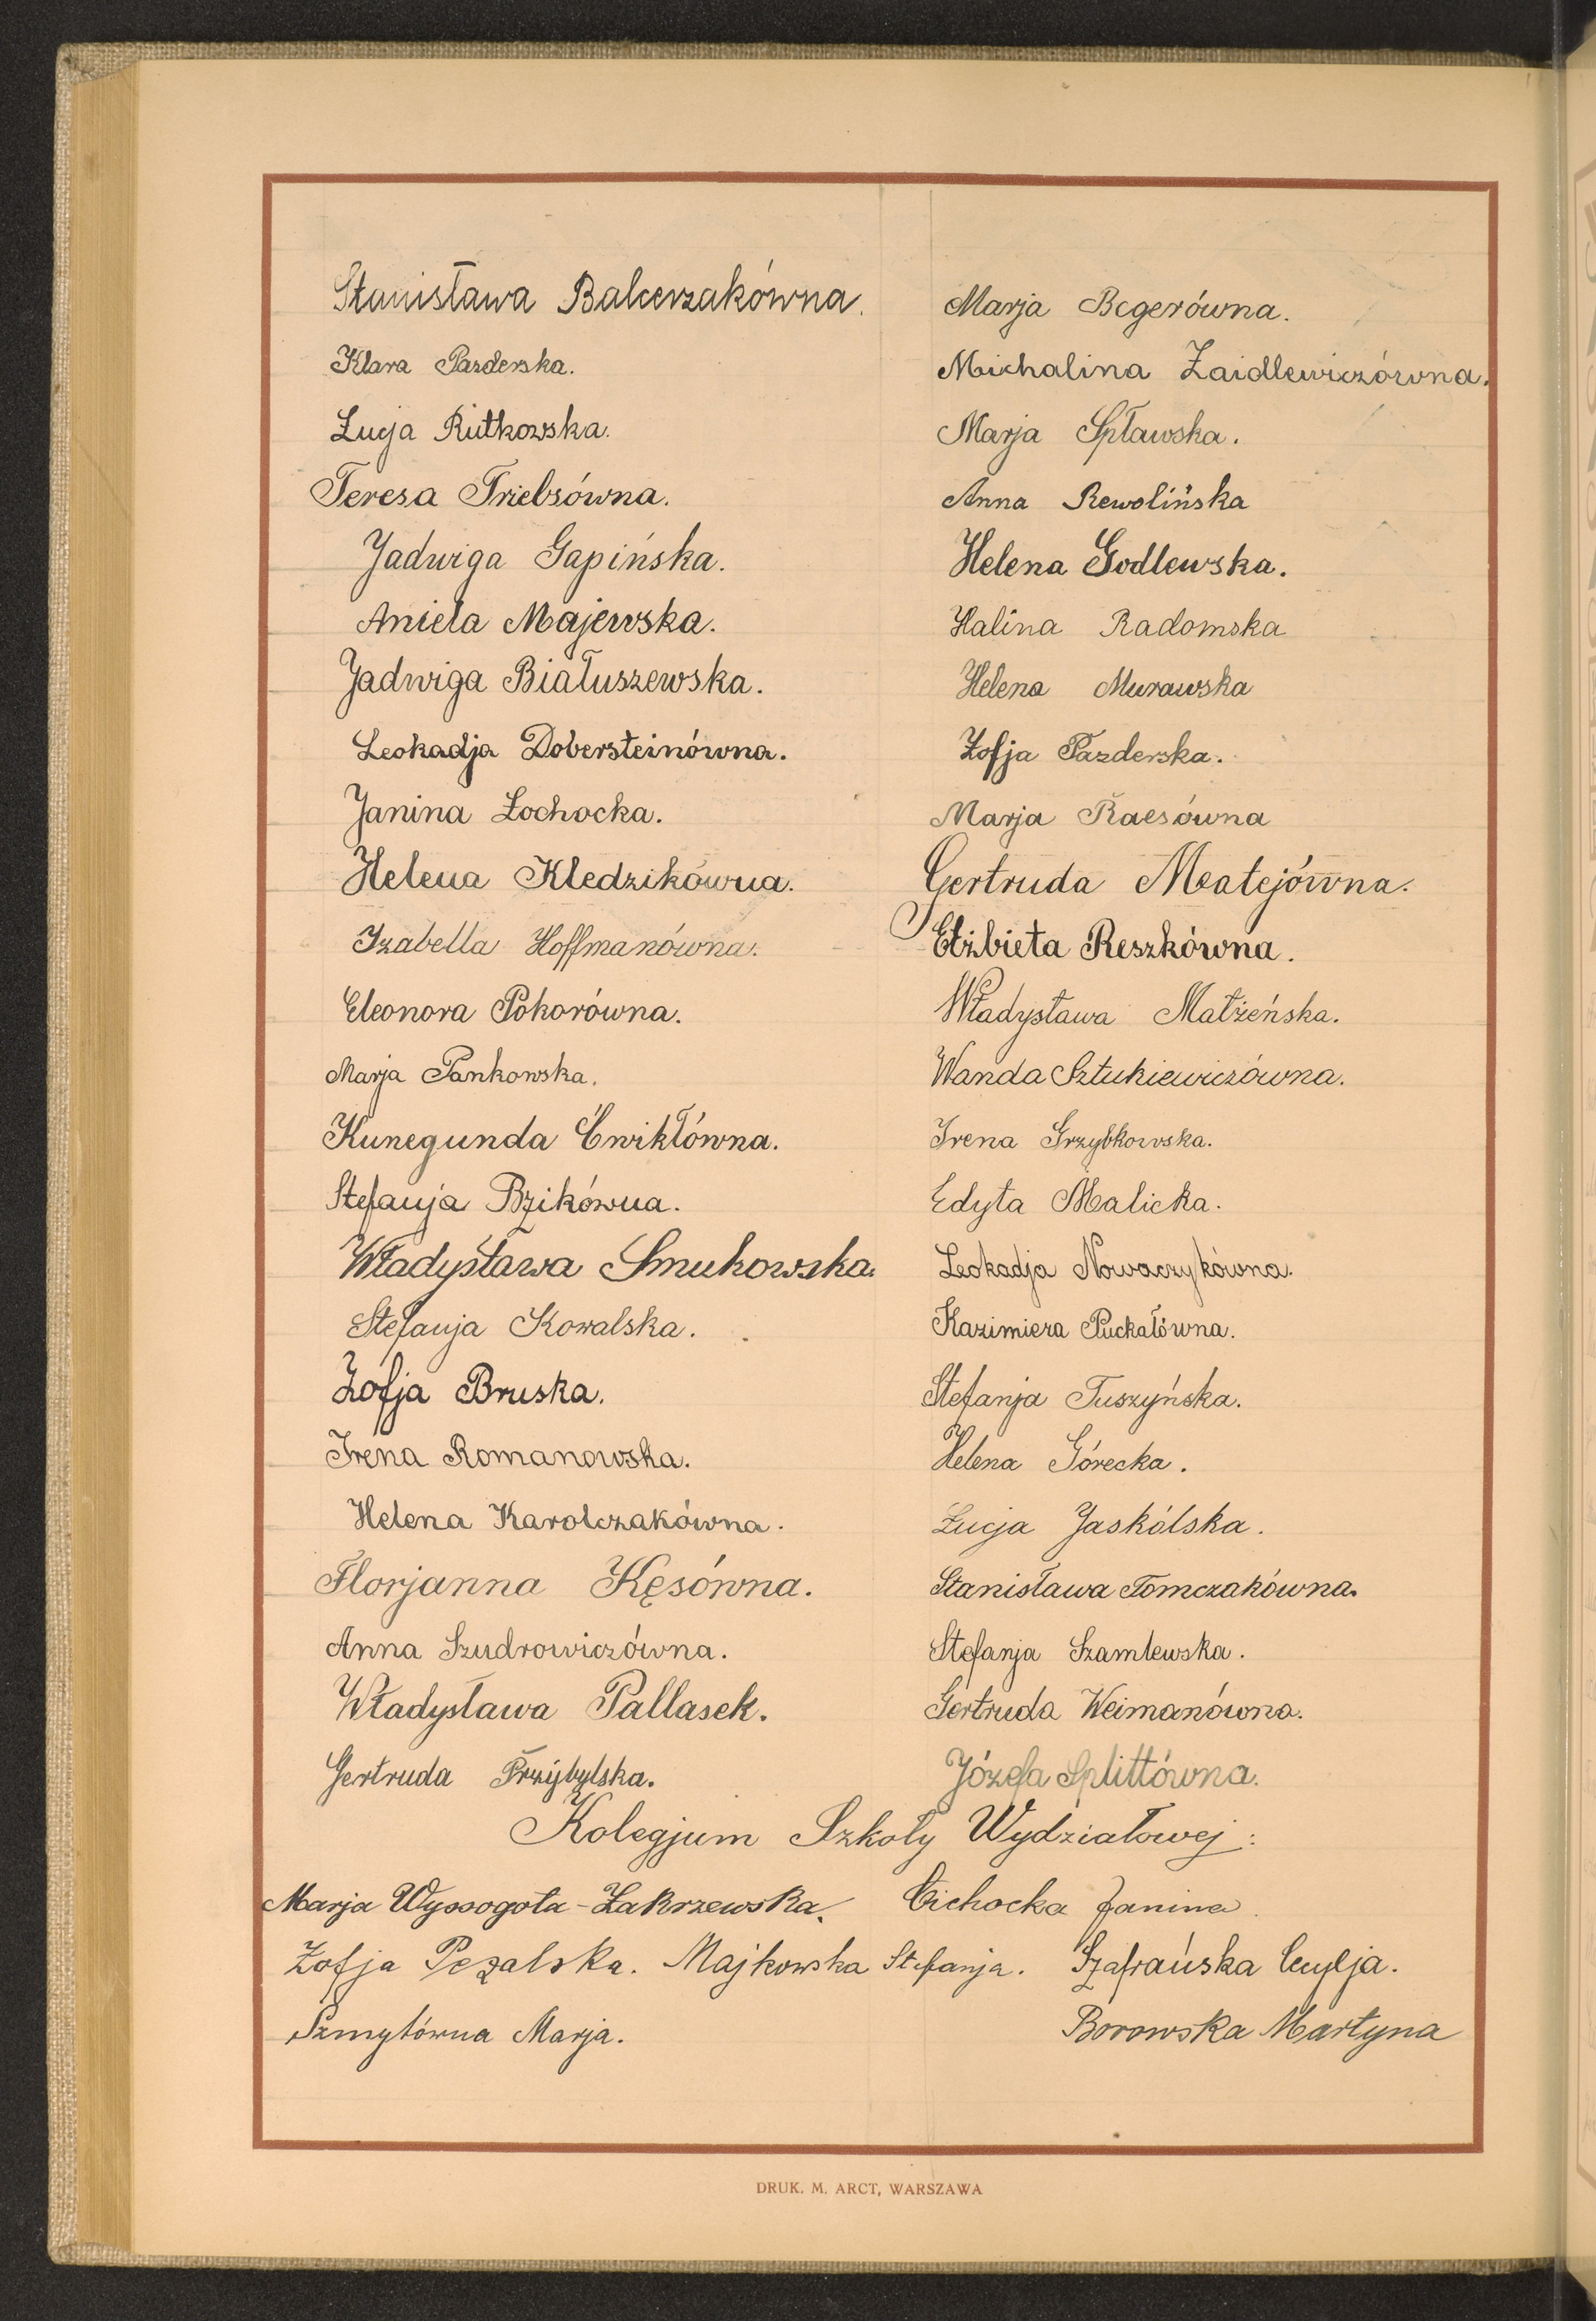 Stanisława Balcerzakówna.
Klara Pazderska.
Łucja Rutkowska.
Teresa Triebsówna.
Jadwiga Gapińska.
Aniela Majewska.
Jadwiga Białuszewska.
Leokadja Dobersteinówna.
Janina Żochocka.
Helena Kledzikówna.
Izabella Hoffmanówna.
Eleonora Pokorówna.
Marja Pankowska.
Kunegunda Ćwikłówna.
Stefanja Bzikówna.
Władysława Smukowska.
Stefanja Kowalska.
Zofja Bruska.
Irena Romanowska.
Helena Karolczakówna.
Florjanna Kęsówna.
Anna Szudrowiczówna.
Władysława Pallasek.
Gertruda Przybylska.
Marja Begerówna.
Michalina Zaidlewiczówna.
Marja Spławska.
Anna Rewolińska
Helena Godlewska.
Halina Radomska
Helena Murawska
Zofja Pazderska.
Marja Raesówna
Gertruda Matejówna.
Elżbieta Reszkówna.
Władysława Małżeńska.
Wanda Sztukiewiczówna.
Irena Grzybkowska.
Edyta Malicka.
Leokadja Nowaczykówna.
Kazimiera Puckałówna.
Stefanja Tuszyńska.
Helena Górecka.
Łucja Jaskólska.
Stanisława Tomczakówna.
Stefanja Szamlewska.
Gertruda Weimanówna.
Józefa Splittówna.
Kolegjum Szkoły Wydziałowej:
Marja Wyssogota-Zakrzewska. Cichocka Janina.
Zofja Pezalska. Majkowska Stefanja. Szafrańska Cecylja.
Szmytówna Marja. Borowska Martyna
DRUK. M. ARCT, WARSZAWA